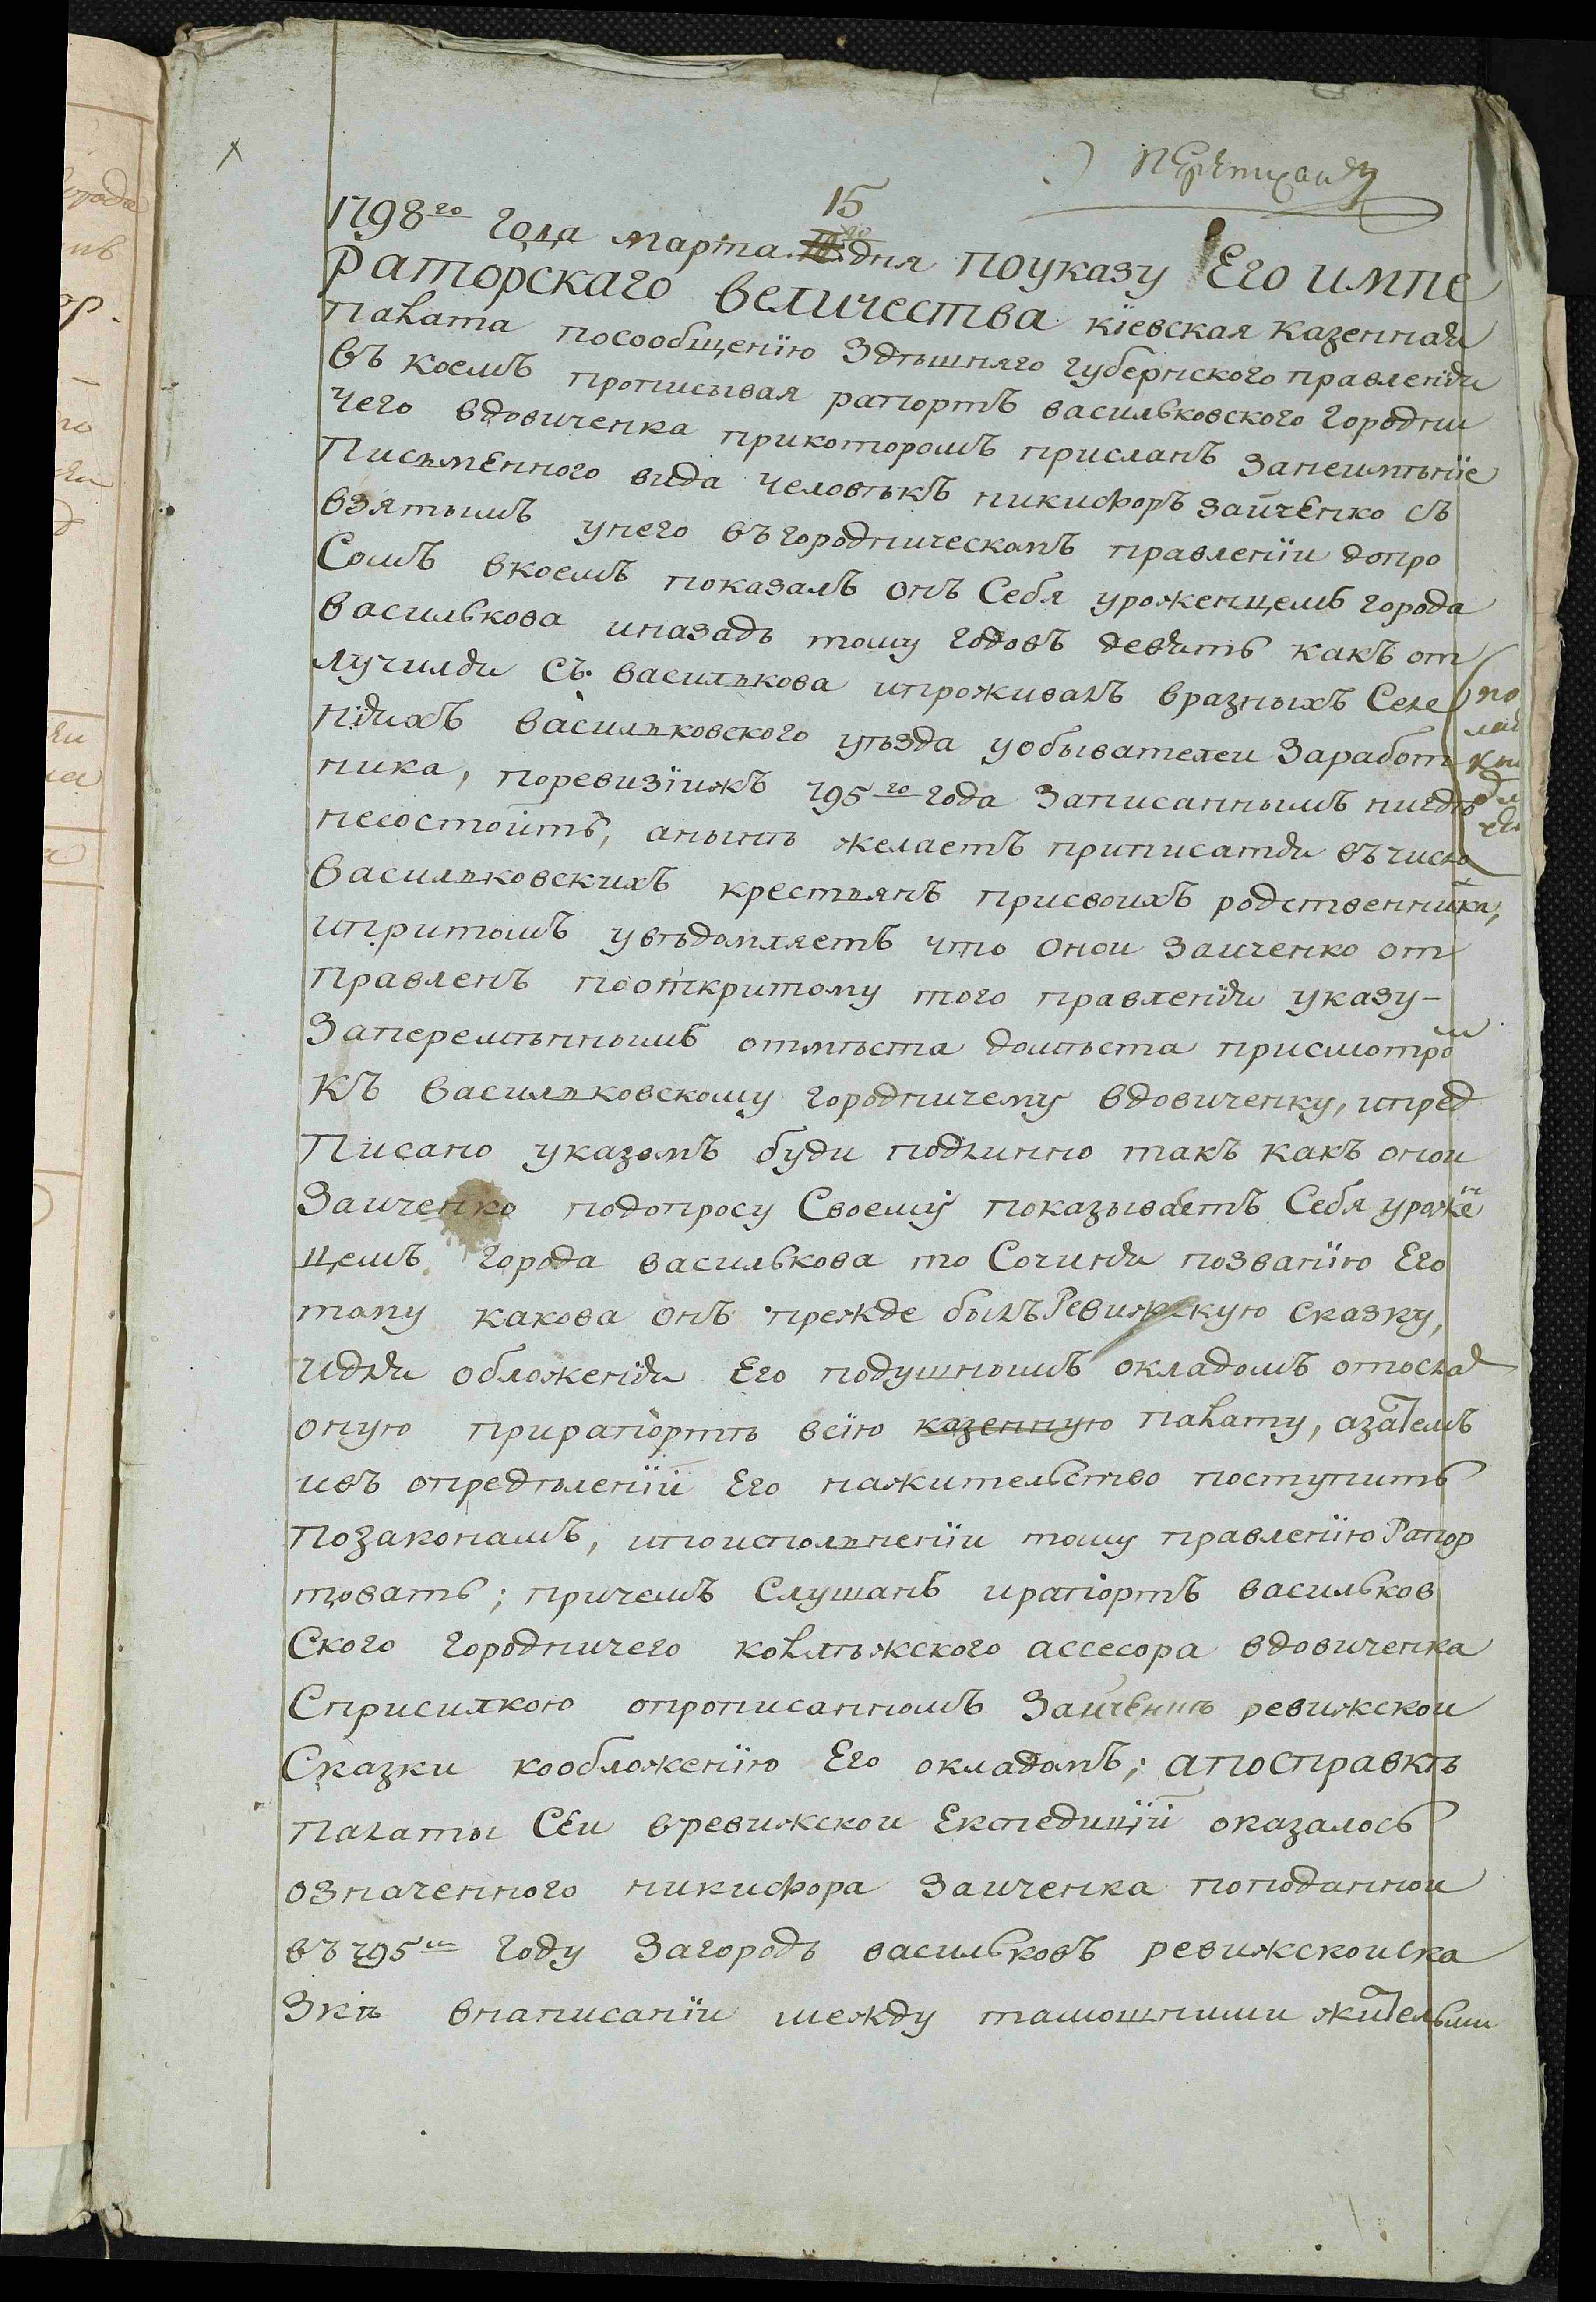 1798го года марта 15 дня поуказу Его импе
раторскаго величества кїевская казенная
палата посообщенїю здѣшняго губернского правленїя
въ коемъ прописывая рапортъ васильковского городни
чего вдовиченка прикоторомъ присланъ занеимѣнїе
письменного вида человѣкъ никифоръ зайченко съ
взятымъ унего въгородническомъ правленїи допро
сомъ вкоемъ показалъ онъ себя уроженцемъ города
василькова иназадъ тому годовъ девять какъ от
лучился съ василькова ипроживалъ вразныхъ селе
нїяхъ васильковского уѣзда уобывателеи заработ
ника, поревизїижъ 795го года записаннымъ нигдѣ
несостоитъ, анынѣ желаетъ приписатся въчисло
васильковскихъ крестьянъ присвоихъ родственника,
ипритомъ увѣдомляетъ что онои заиченко от
правленъ пооткритому того правленїя указу-
заперемѣннымъ отмѣста домѣста присмотром
къ васильковскому городничему вдовиченку, ипред
писано указомъ буди подлинно такъ какъ онои
заиченко подопросу своему показываетъ себя урожен
цемъ города василькова то сочиня позванїю его
тому какова онъ прежде былъ ревижскую сказку,
идля обложенїя его подушнымъ окладомъ отослал
оную прирапортѣ всїю казенную палату, азатемъ
ивъ опредѣленїи его нажительство поступить
позаконамъ, ипоисполненїи тому правленїю рапор
товать; причемъ слушанъ ирапортъ васильков
ского городничего колѣжского ассесора вдовиченка
сприсилкою опрописанномъ заиченкѣ ревижскои
сказки кообложенїю его окладомъ; апосправкѣ
палаты сеи вревижскои експедицїи оказалось
означенного никифора заиченка поподаннои
въ 795м году загородъ васильковъ ревижскои ска
зкѣ внаписанїи между тамошними жительми